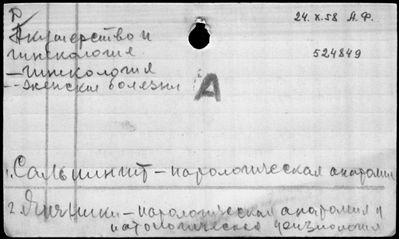 Акушерство и
гинекология
24.X.58 А.Ф.
524849
– гинекология
– женские болезни
А
1. Сальпингит – патологическая анатомия
2. Яичники – патологическая анатомия и
патологическая физиология